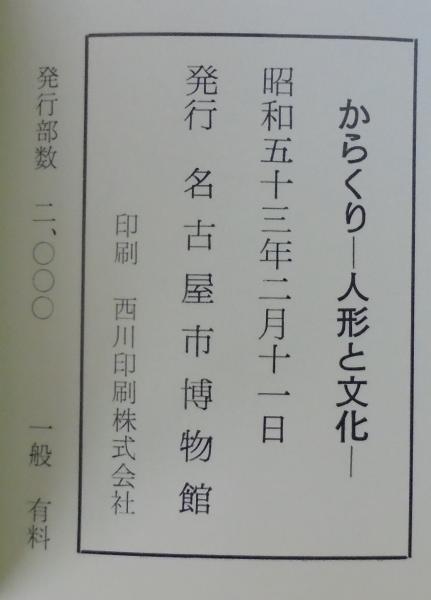 からくり―人形と文化―
昭和五十三年二月十一日
発行 名古屋市博物館
印刷 西川印刷株式会社
発行部数 二、〇〇〇 一般 有料